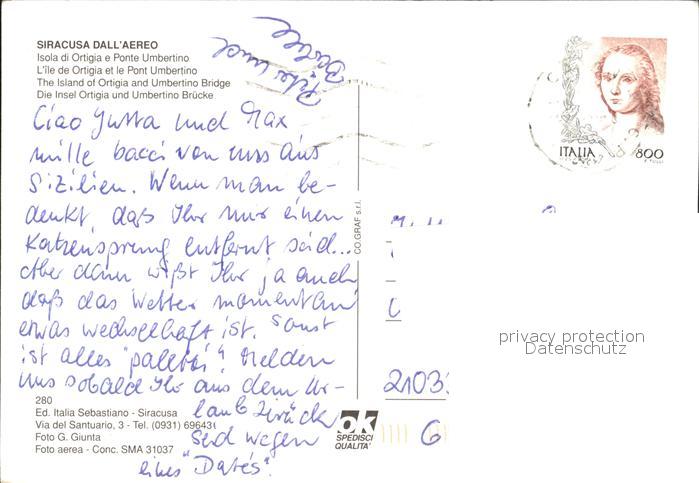 SIRACUSA DALL'AEREO
Isola di Ortigia e Ponte Umbertino
L'île de Ortigia et le Pont Umbertino
The Island of Ortigia and Umbertino Bridge
Die Insel Ortigia und Umbertino Brücke
Ciao Jutta und Max
mille bacci von uns aus
Sizilien. Wenn man be-
denkt, daß Ihr nur einen
Katzensprung entfernt seid...
Aber dann wißt Ihr ja auch
daß das Wetter momentan
etwas wechselhaft ist. Sonst
ist alles "paletti". Melden
uns sobald Ihr aus dem Ur-
laub zurück
seid wegen
eines
und
ITALIA
800
CO.GRAF s.r.l.
privacy protection
Datenschutz
2103
6
280
Ed. Italia Sebastiano - Siracusa
Via del Santuario, 3 - Tel. (0931) 69643
Foto G. Giunta
Foto aerea - Conc. SMA 31037
ok
SPEDISCI
QUALITA'